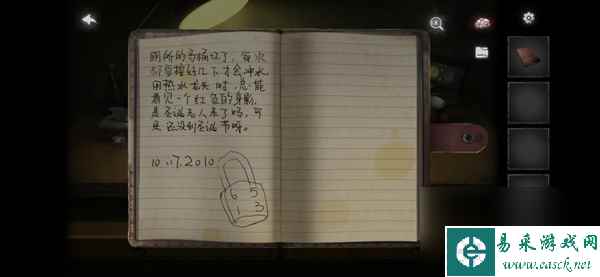 厕所的马桶坏了，每次
都要按好几下才会冲水
用热水龙头时，总能
看见一个红色的身影，
是圣诞老人来了吗，可
是还没到圣诞节呀。
10.17.2010
6 5
1 3
易采游戏网
www.easck.com